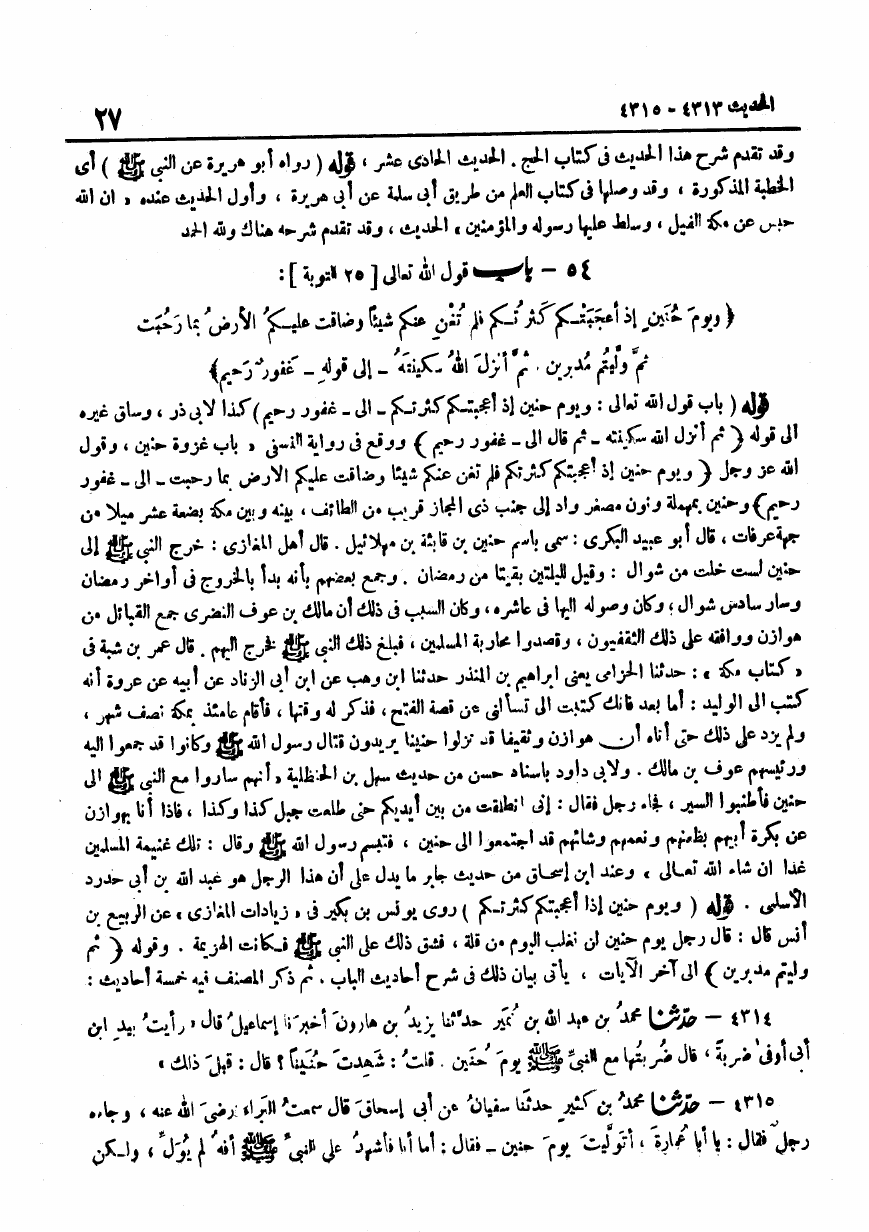 الحديث ٤٣١٣ - ٤٣١٥
٢٧
وقد تقدم شرح هذا الحديث فى كتاب الحج . الحديث الحادى عشر ، قوله ( رواه أبو هريرة عن النبي ﷺ ) أى
الخطبة المذكورة ، وقد وصلها فى كتاب العلم من طريق أبى سلمة عن أبى هريرة ، وأول الحديث عنده « ان الله
حبس عن مكة الفيل ، وسلط عليها رسوله والمؤمنين » الحديث ، وقد تقدم شرحه هناك ولله الحمد
٥٤ – باب قول الله تعالى [ ٢٥ التوبة ] :
﴿ ويومَ حُنَينٍ إذ أعجَبَتْـكم كَثرتُـكم فلم تُغْنِ عنكم شيئاً وضاقت عليـكمُ الأرضُ بما رَحُبَت
ثمَّ وليتُم مُدبرين . ثمَّ أنزلَ اللهُ سكينتَهُ ـ إلى قولهِ ـ غفورٌ رَحيم﴾
قوله ( باب قول الله تعالى : ويوم حنين إذ أعجبتـكم كثرتـكم ـ الى ـ غفور رحيم) كذا لابى ذر ، وساق غيره
الى قوله ﴿ ثم أنزل الله سكينته ـ ثم قال الى ـ غفور رحيم ﴾ ووقع فى رواية النسفى « باب غزوة حنين ، وقول
الله عز وجل ﴿ ويوم حنين إذ أعجبتكم كثرتكم فلم تغن عنكم شيئا وضاقت عليكم الارض بما رحبت ـ الى ـ غفور
رحيم﴾ وحنين بمهملة ونون مصغر واد إلى جنب ذى المجاز قريب من الطائف ، بينه وبين مكة بضعة عشر ميلا من
جهة عرفات ، قال أبو عبيد البكرى : سمى باسم حنين بن قابثة بن مهلائيل . قال أهل المغازى : خرج النبي ﷺ إلى
حنين لست خلت من شوال : وقيل لليلتين بقيتا من رمضان . وجمع بعضهم بأنه بدأ بالخروج فى أواخر رمضان
وسار سادس شوال ؛ وكان وصوله اليها فى عاشره ، وكان السبب فى ذلك أن مالك بن عوف النضرى جمع القبائل من
هوازن ووافقه على ذلك الثقفيون ، وقصدوا محاربة المسلمين ، فبلغ ذلك النبي ﷺ فخرج اليهم . قال عمر بن شبة فى
« كتاب مكة » : حدثنا الحزامى يعنى ابراهيم بن المنذر حدثنا ابن وهب عن ابن أبى الزناد عن أبيه عن عروة أنه
كتب الى الوليد : أما بعد فانك كتبت الى تسألنى عن قصة الفتح ، فذكر له وقتها ، فأقام عامئذ بمكة نصف شهر ،
ولم يزد على ذلك حتى أتاه أن هوازن وثقيفا قد نزلوا حنينا يريدون قتال رسول الله ﷺ وكانوا قد جمعوا اليه
ورئيسهم عوف بن مالك . ولابى داود باسناد حسن من حديث سهل بن الحنظلية « أنهم ساروا مع النبي ﷺ الى
حنين فأطنبوا السير ، فجاء رجل فقال : إنى انطلقت من بين أيديكم حتى طلعت جبل كذا وكذا ، فاذا أنا بهوازن
عن بكرة أبيهم بظعنهم ونعمهم وشائهم قد اجتمعوا الى حنين ، فتبسم رسول الله ﷺ وقال : تلك غنيمة المسلمين
غدا ان شاء الله تعـالى » وعند ابن إسحـاق من حديث جابر ما يدل على أن هذا الرجل هو عبد الله بن أبى حدرد
الأسلمى . قوله ( ويوم حنين إذا أعجبتكم كثرتـكم ) روى يونس بن بكير فى « زيادات المغازى » عن الربيع بن
أنس قال : قال رجل يوم حنين لن نغلب اليوم من قلة ، فشق ذلك على النبي ﷺ فـكانت الهزيمة . وقوله ﴿ ثم
وليتم مدبرين ﴾ الى آخر الآيات ، يأتى بيان ذلك فى شرح أحاديث الباب . ثم ذكر المصنف فيه خمسة أحاديث :
٤٣١٤ – حدّثنا محمدُ بن عبد الله بن نُمير حدَّثنا يزيدُ بن هارونَ أخبرَنا إسماعيلُ قال « رأيتُ بيدِ ابن
أبى أوفى ضربةً ، قال ضُربتُها مع النبيِّ ﷺ يومَ حُنَين . قلتُ : شهِدتَ حُنَيناً ؟ قال : قبلَ ذلك »
٤٣١٥ – حدّثنا محمدُ بن كثيرٍ حدثَنا سفيانُ عن أبى إسحاقَ قال سمعتُ البَراء رضىَ الله عنه ، وجاءه
رجلٌ فقال : يا أبا عُمارةَ ، أتوَلَّيتَ يومَ حنين ـ فقال : أما أنا فأشهدُ على النبيِّ ﷺ أنهُ لم يُوَلِّ ، ولـكن